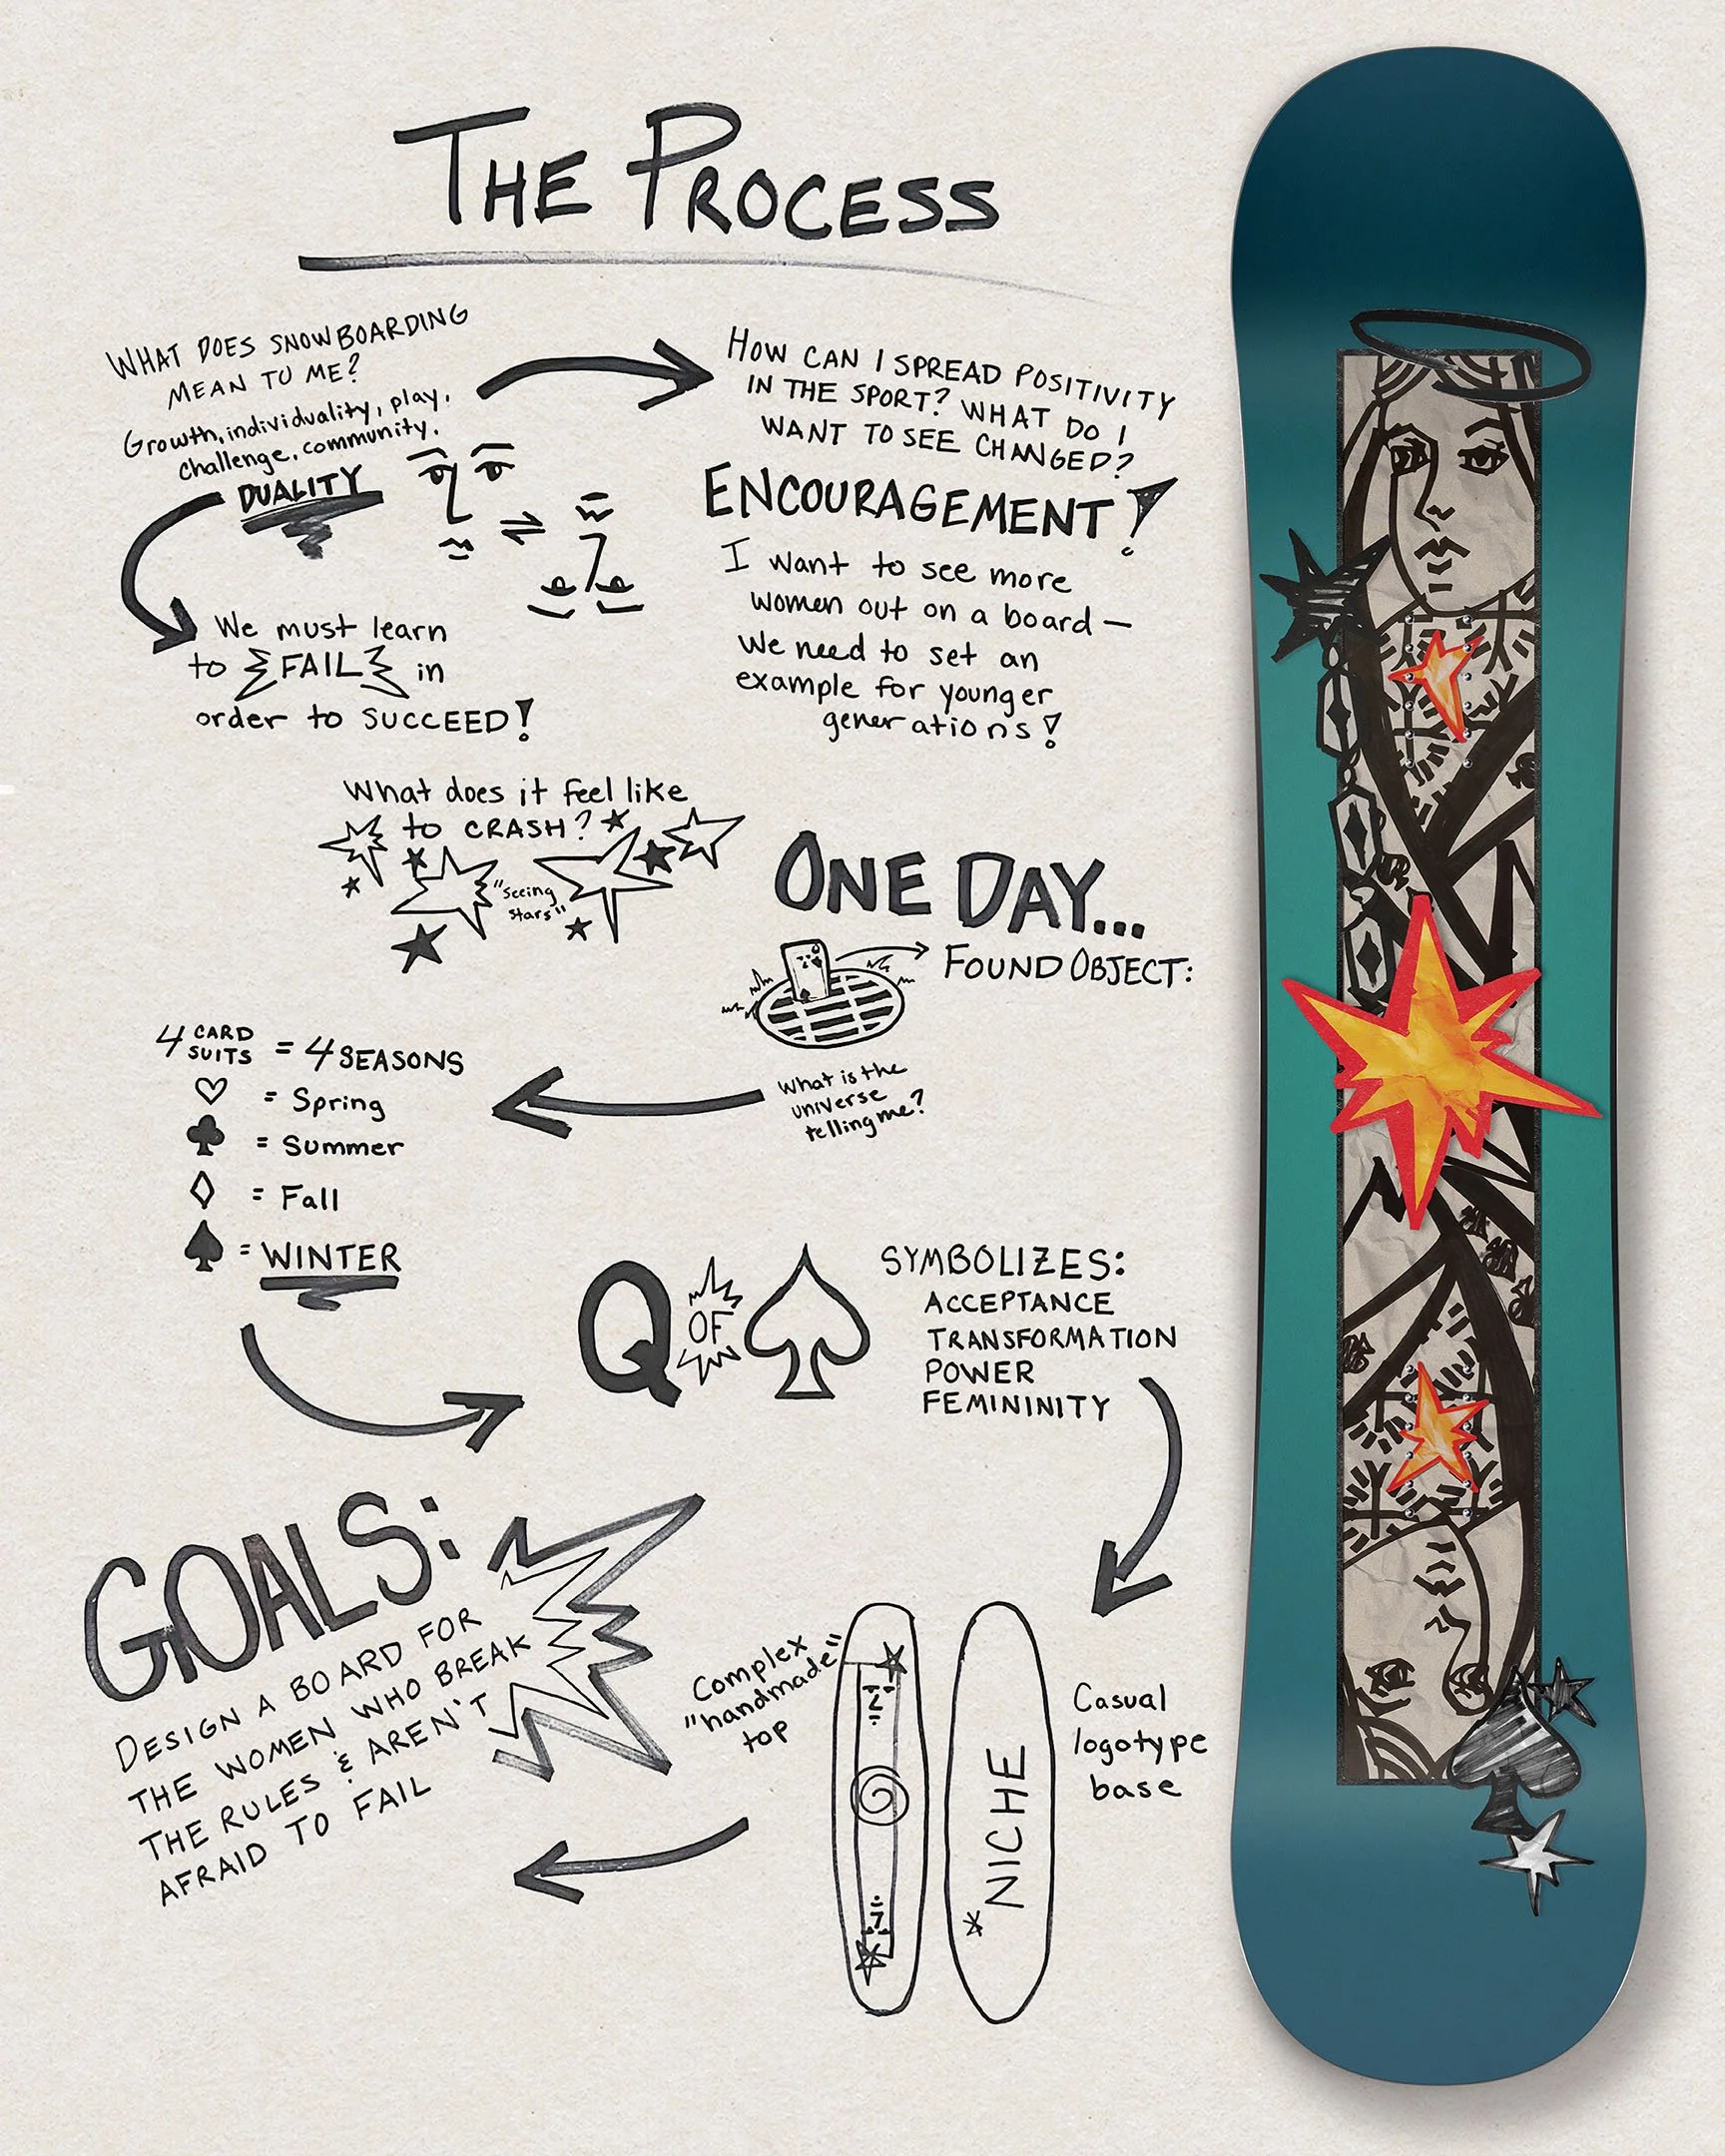 THE PROCESS
WHAT DOES SNOWBOARDING
MEAN TO ME?
Growth, individuality, play,
challenge, community.
DUALITY
We must learn
to FAIL in
order to SUCCEED!
HOW CAN I SPREAD POSITIVITY
IN THE SPORT? WHAT DO I
WANT TO SEE CHANGED?
ENCOURAGEMENT!
I want to see more
women out on a board—
We need to set an
example for younger
generations!
What does it feel like
to CRASH?
"seeing
stars"
ONE DAY...
FOUND OBJECT:
What is the
universe
telling me?
4 CARD
SUITS = 4 SEASONS
♡ = Spring
♣ = Summer
♢ = Fall
♠ = WINTER
Q OF ♤
SYMBOLIZES:
ACCEPTANCE
TRANSFORMATION
POWER
FEMININITY
GOALS:
DESIGN A BOARD FOR
THE WOMEN WHO BREAK
THE RULES & AREN'T
AFRAID TO FAIL
Complex
"handmade"
top
*NICHE
Casual
logotype
base